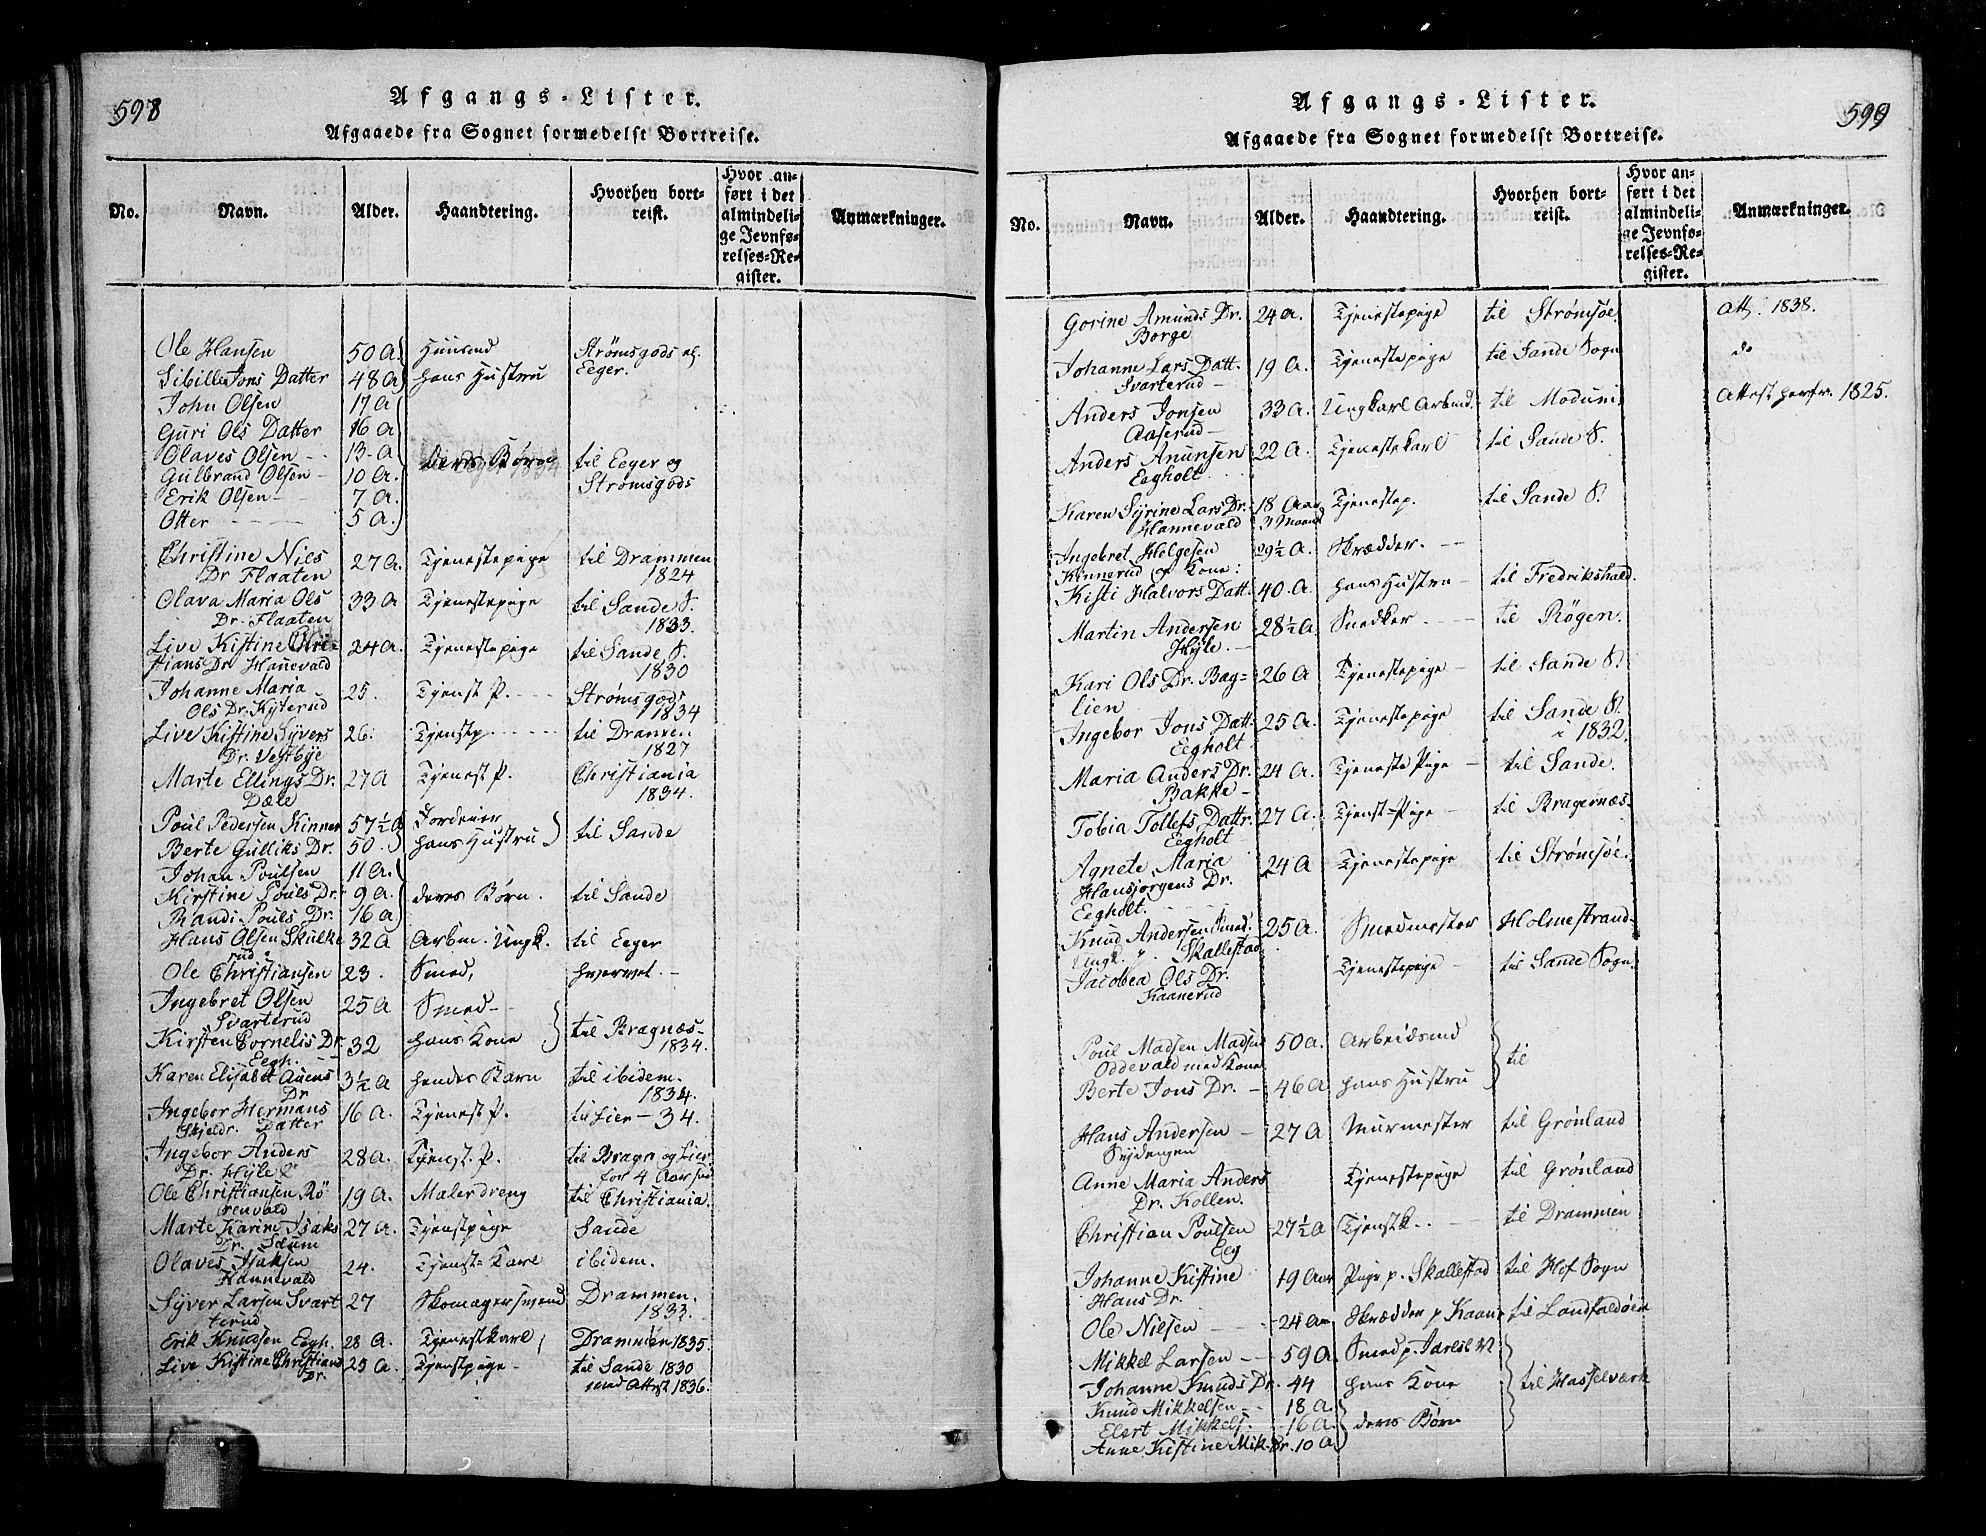 598
Afgangs-Lister.
Afgaaede fra Sognet formedelst Bortreise.
No. Navn. Alder. Haandtering. Hvorhen bortreist. Hvor anført i det almindelige Jevnførelses-Register. Anmærkninger.
Ole Hansen 50 A Huusmd Strømsgods og
Sibille Jons Datter 48 A hans Hustru Eeger.
John Olsen 17 A
Guri Ols Datter 16 A
Olaves Olsen - 13 - A deres Børn til Eeger og
Gulbrand Olsen - 10 A. Strømsgods
Erik Olsen - 7 A.
Otter - - - 5 A.
Christine Nils 27 A. Tjenestepige til Drammen
Dr Flaaten 1824
Olava Maria Ols 33 A Tjenestepige til Sande S.
Dr. Flaaten 1833.
Live Kistine Chri= 24 A. Tjenestepige til Sande S.
stians Dr Hanevald 1830
Johanne Maria 25. Tjenst P. - - - Strømsgods
Ols Dr. Kjterud 1834
Live Kistine Syvers 26. Tjenstp. - - - til Dramen
Dr. Vestbye 1827
Marte Ellings Dr. 27 A Tjenest P. Christiania
Dæle 1834.
Poul Pedersen Kinner 57½ A Jordeier
Berte Gulliks Dr. 50. hans Hustru til Sande
Johan Poulsen 11 A.
Kirstine Pouls Dr. 9 A. deres Børn. til Sande
Randi Pouls Dr. 16 A
Hans Olsen Skulke 32 A Arbm. Ungk. til Eeger
rud
Ole Christiansen 23. Smed,
Ingebret Olsen 25 A Smed -
Svarterud til Bragnæs -
Kirsten Cornelis Dr 32 hans Kone 1834.
Eegh.
Karen Elisabet Auens 3½ A hendes Barn til ibidem.
Dr 1834.
Ingebor Hermans 16 A. Tjenest P. til Lier - 34.
Skjeldr. Datter
Ingebor Anders 28 A. Tjenst. P. til Bragn og Lier
Dr. Hÿle for 4 Aar sid
Ole Christiansen Rö 19 A. Malerdreng til Christiania.
renvald
Marte Karine Isaks 27 A. Tjenstpige Sande
Dr. Solum
Olaves Isaksen 24. Tjenst= Karl ibidem.
Hannevald
Syver Larsen Svart 27 Skomagersvend Drammen.
terud 1833.
Erik Knudsen Eegh. 28 A. Tjenestkarl, Drammen 1835.
Live Kistine Christians 25 A. Tjenstpige - til Sande 1830
Dr. med Attest 1836.
599
Afgangs-Lister.
Afgaaede fra Sognet formedelst Bortreise.
No. Navn. Alder. Haandtering. Hvorhen bortreist. Hvor anført i det almindelige Jevnførelses-Register. Anmærkninger.
Gorine Amunds Dr. 24 A. Tjenestepige til Strömsöe. Att. 1838.
Borge
Johanne Lars Datt. 19 A. Tjenestepige til Sande Sogn do
Svarterud -
Anders Jonsen 33 A. Ungkarl Arbmd. til Modum Attest herfr. 1825.
Aaserud -
Anders Anunsen 22 A. Tjenestekarl til Sande S.
Eegholt
Karen Syrine Lars Dr. 18 Aar Tjenestep. til Sande S.
Hannevald 3 Maand
Ingebret Helgesen 29½ A. Skrædder. -
Kinnerud og Kone:
Kisti Halvors Datt. 40. A. hans Hustru - til Fredrikshald.
Martin Andersen 28½ A. Snedker - - - til Rögen.
Hÿle. -
Kari Ols Dr. Bag= 26 A Tjenestepige - til Sande S.
lien
Ingebor Jons Datt. 25 A. Tjenestepige til Sande S.
Eegholt i 1832.
Maria Anders Dr. 24 A. Tjeneste Pige - til Sande.
Bakke -
Tobia Tollefs Dattr. 27 A. Tjenst-Pige - til Bragernæs -
Eegholt
Agnete Maria 24 A Tjenestepige til Strömsöe.
Hansjorgens Dr.
Eegholt.
Knud Andersen Smed. 25 A. Smedmester Holmestrand -
Ungk. Skallestad
Jacobea Ols Dr. Tjenestepige - til Sande Sogn.
Kaanerud
Poul Madsen Madsen 50 A. Arbeidsmd
Oddevald med Kone til
Berte Jons Dr. - 46 A hans Hustru
Hans Andersen - 27 A Murmester til Grönland
Anne Maria Anders Tjenestepige til Grönland
Dr. Kollen.
Christian Poulsen 27½ A Tjenstk.. til Drammen
Eeg
Johanne Kistine 19 Aar Pige p. Skallestad til Hof Sogn
Hans Dr.
Ole Nilsen - - 24 Aar Skrædder p Kaaner til Landfaldöen
Mikkel Larsen - - 59 A. Smed p. Jarlsb. V
Johanne Knuds Dr. 44 hans Kone til Hasselværk
Knud Mikkelsen - - 18 A.
Elert Mikkels. - 16 A. deres Børn
Anne Kistine Mik. Dr. 10 A